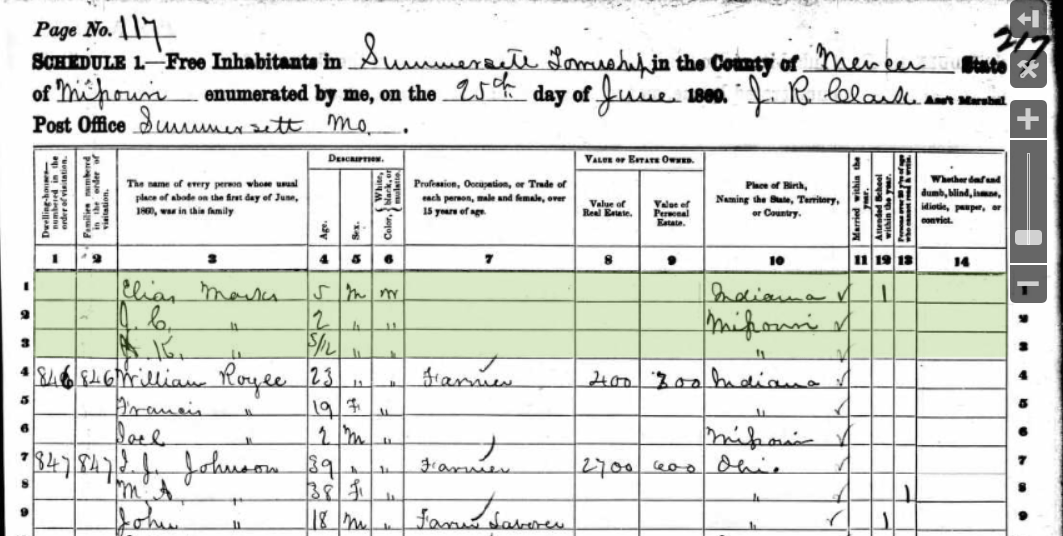 Page No. 117
217
SCHEDULE 1.—Free Inhabitants in Summersett Township in the County of Mercer State
of Missouri enumerated by me, on the 25th day of June 1860. J. R. Clark Ass't Marshal
Post Office Summersett Mo.
DESCRIPTION. VALUE OF ESTATE OWNED.
Dwelling-houses—numbered in the order of visitation.
Families numbered in the order of visitation.
The name of every person whose usual place of abode on the first day of June, 1860, was in this family
Age.
Sex.
Color, White, black, or mulatto.
Profession, Occupation, or Trade of each person, male and female, over 15 years of age.
Value of Real Estate.
Value of Personal Estate.
Place of Birth, Naming the State, Territory, or Country.
Married within the year.
Attended School within the year.
Persons over 20 y'rs of age who cannot read & write.
Whether deaf and dumb, blind, insane, idiotic, pauper, or convict.
1 2 3 4 5 6 7 8 9 10 11 12 13 14
1 Elias Marks 5 m m Indiana ✓ 1 1
2 J. C. " 2 " " Missouri ✓ 2
3 K. " 5/12 " " " ✓ 3
4 846 846 William Roye 23 " " Farmer 400 300 Indiana ✓ 4
5 Francis " 19 F " " ✓ 5
6 Joel " 2 M " Missouri ✓ 6
7 847 847 J. Johnson 39 " " Farmer 2700 600 Ohio ✓ 7
8 M. A. " 38 F " " ✓ 1 8
9 John " 18 M " Farm Laborer " ✓ 1 9